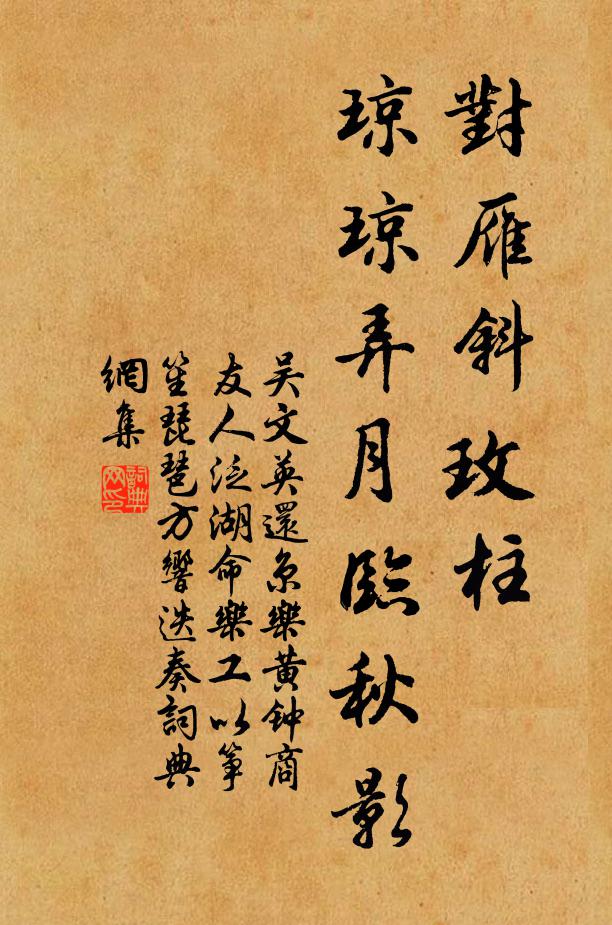 對雁斜玫柱
琼琼弄月臨秋影
吴文英還京樂黄钟商
友人泛湖命樂工以筝
笙琵琶方響迭奏詞典
網集
詞典網印